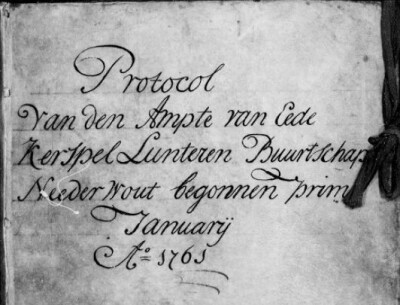 Protocol
Van den Ampte van Eede
Kerspel Lunteren Buurtschap
Neederwout begonnen prim
January
Ao 1761